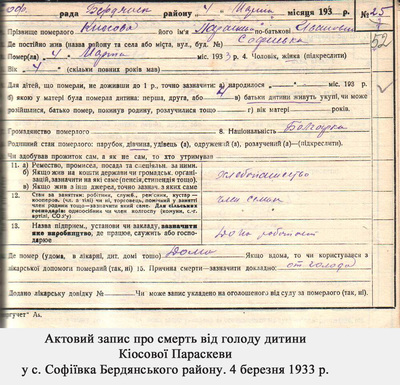 Соф. рада Бердянськ району 4 Марта місяця 193 р. № 25
52
Прізвище померлого Киосова його ім'я Параска по-батькові
Де постійно жив (назва району та села або міста, вул., буд. №) Софиевка
Помер(ла) 4 Марта міс. 193 3 р. 4. Чоловік, жінка (підкреслити)
Вік 4 (скільки повних років мав)
Для дітей, що померли, не доживши до 1 р., точно зазначити: а) народилося міс. 193 р.
б) якою у матері була померла дитина: перша, друга, або 4 в) батьки дитини живуть укупі, чи може
розійшлися, батько помер, покинув родину, розлучилися тощо г) вік матері років.
Громадянство померлого 8. Національність Болгарка
Родинний стан померлого: парубок, дівчина, удівець (а), одружений (а), розлучений (а)—(підкреслити).
Чи здобував прожиток сам, а як ні, то хто утримував
11. а) Ремество, промисел, посада та спеціальн. за ними.
б) Якщо жив на кошти держави чи громадськ. організацій, зазначити на які саме (пенсія, стипендія тощо).
в) Якщо жив з інш джерел, точно зазнач. з яких саме
12.
13. Назва підприєм., установи чи закладу, зазначити яке виробництво, де працює, служить або господарює
Де помер (удома, в лікарні, дит. домі тощо) Дома Якщо вдома, то чи користувався з
лікарської допомоги померлий (так, ні) 15. Причина смерти—зазначити докладно: от голоду
Додано лікарську довідку № Чи може запис укладено на оголошення від суду за померлого (так, ні).
Актовий запис про смерть від голоду дитини
Кіосової Параскеви
у с. Софіївка Бердянського району. 4 березня 1933 р.